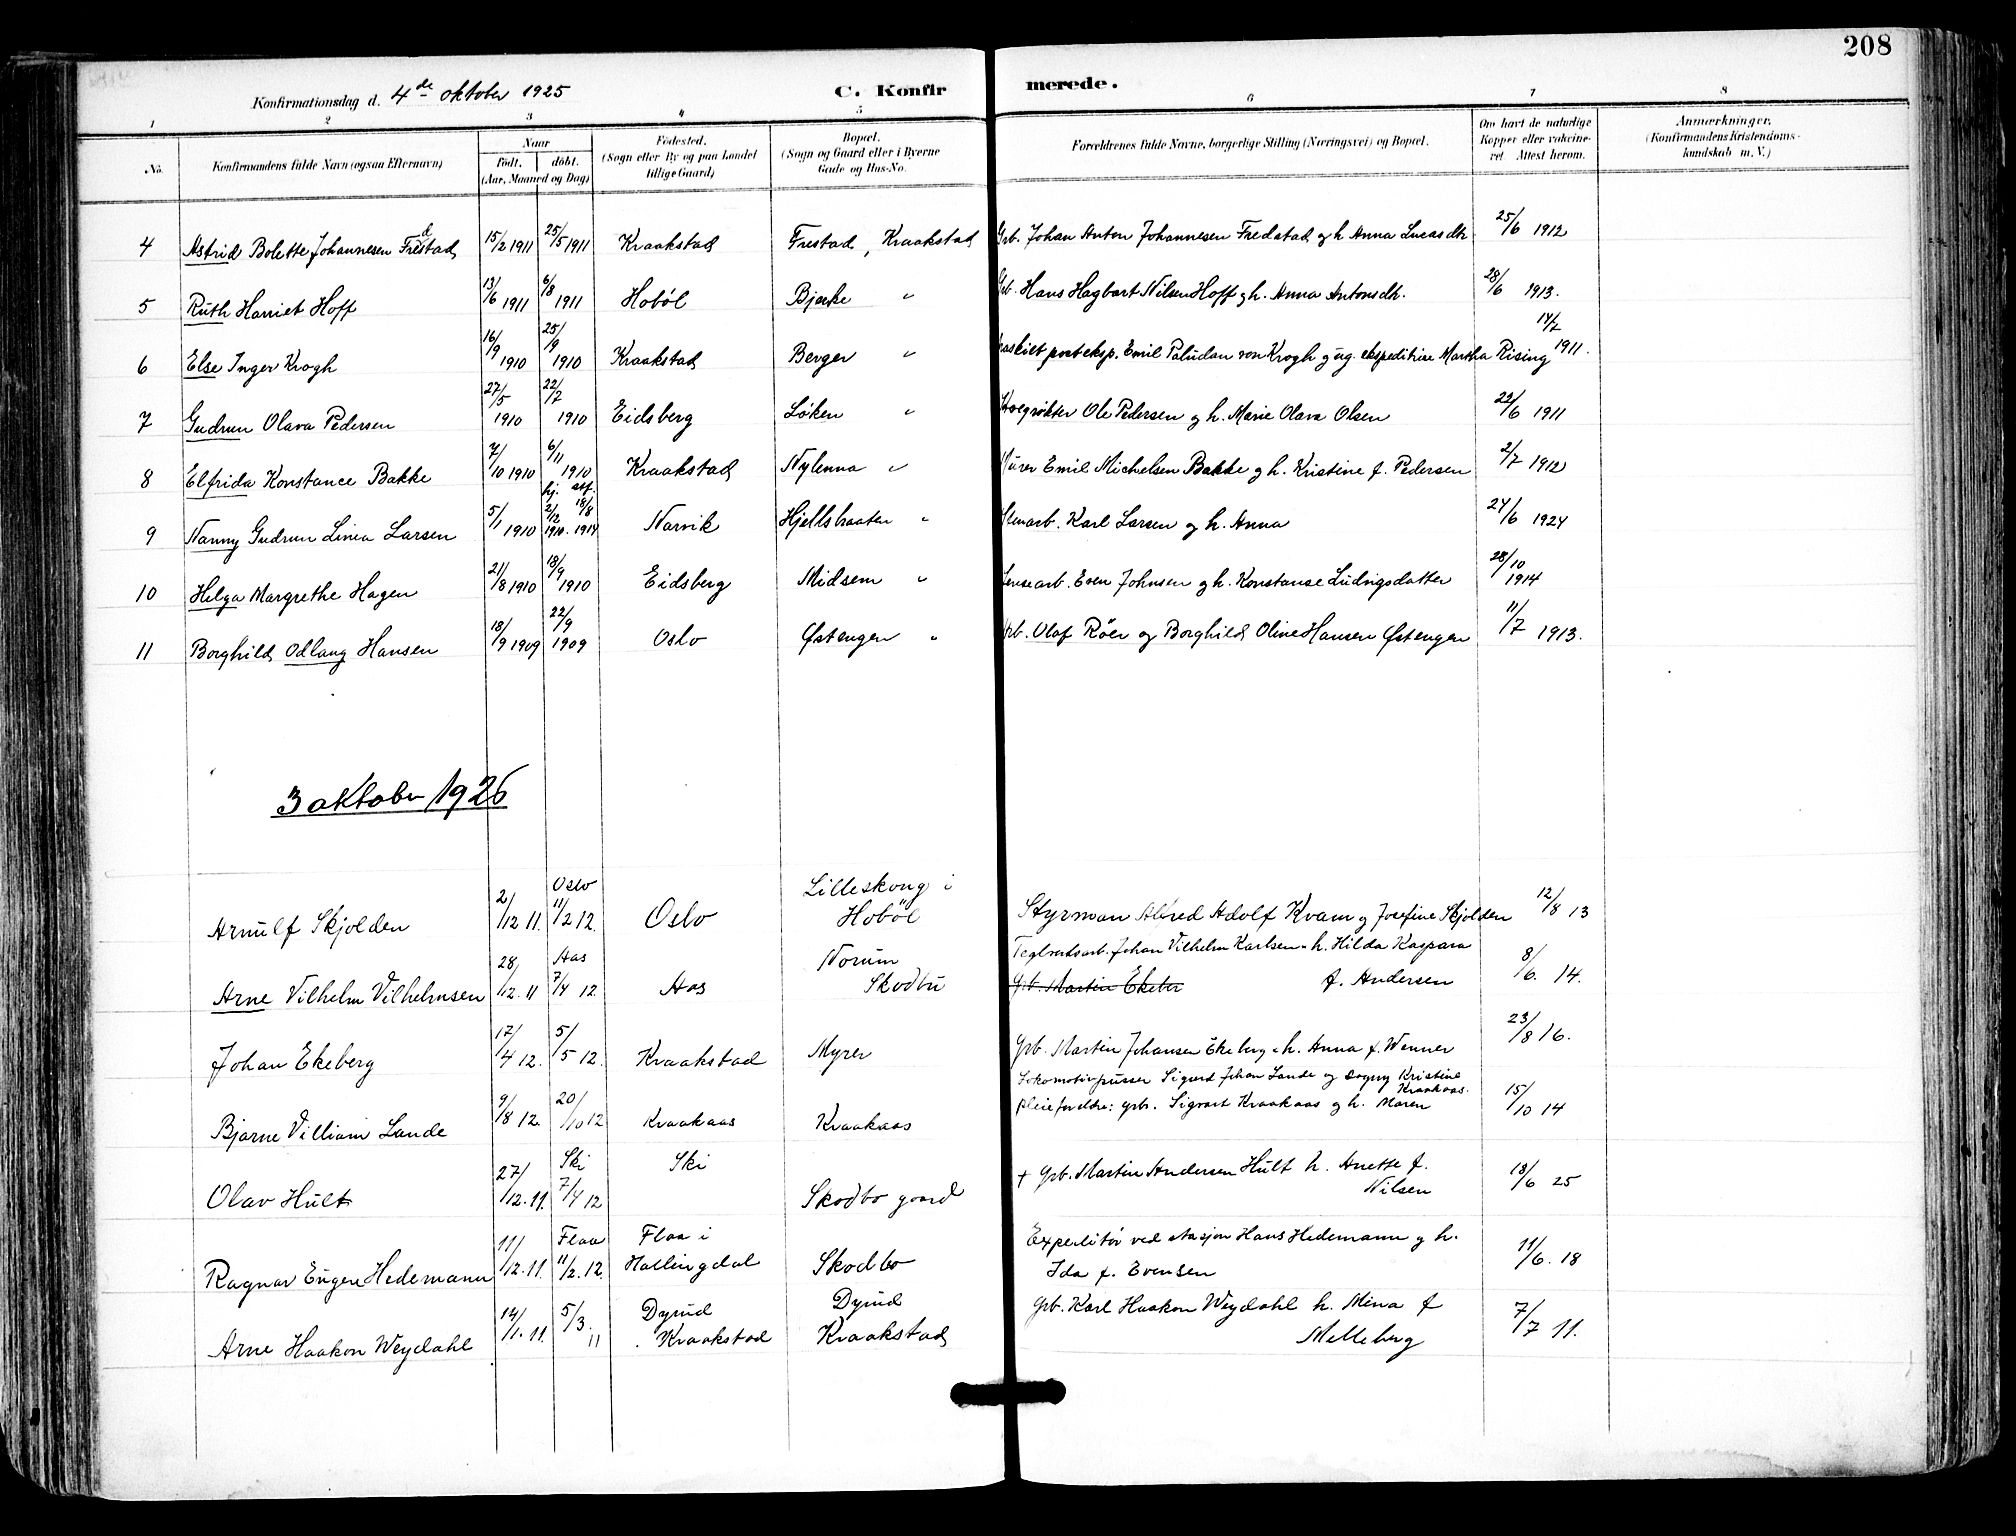 208
Konfirmationsdag d. 4de oktober 1925
C. Konfirmerede.
1 2 3 4 5 6 7 8
No. Konfirmandens fulde Navn (ogsaa Efternavn) Naar Født. døbt. (Aar, Maaned og Dag) Fødested. (Sogn eller By og paa Landet tillige Gaard) Bopæl. (Sogn og Gaard eller i Byerne Gade og Hus-No. Forældrenes fulde Navne, borgerlige Stilling (Næringsvei) og Bopæl. Om havt de naturlige Kopper eller vakcineret. Attest herom. Anmærkninger. (Konfirmandens Kristendomskundskab m. V.)
4 Astrid Bolette Johannesen Fredstad 15/2 1911 25/5 1911 Kraakstad Frestad, Kraakstad Grb. Johan Anton Johannesen Fredstad og h Anna Lucasdtr 25/6 1912
5 Ruth Harriet Hoff 13/6 1911 6/8 1911 Hobøl Bjerke " Grb. Hans Hagbart Nilsen Hoff og h. Anna Antonsdtr. 28/6 1913.
6 Else Inger Krogh 16/9 1910 25/9 1910 Kraakstad Berger " fraskilt posteksp. Emil Paludan von Krogh og ug. ekspeditrise Martha Rising 14/7 1911.
7 Gudrun Olava Pedersen 27/5 1910 22/7 1910 Eidsberg Løken " Ole Pedersen og h. Marie Olava Olsen 22/6 1911
8 Elfrida Konstance Bakke 7/10 1910 6/11 1910 Kraakstad Nylenna " Murer Emil Michelsen Bakke og h. Kristine f. Pedersen 2/7 1912
9 Nanny Gudrun Linea Larsen 5/1 1910 hj. 2/12 1910. stf. 18/8 1914 Narvik Hjellsbraaten " Stenarb. Karl Larsen og h. Anna 24/6 1924
10 Helga Margrethe Hagen 21/8 1910 18/9 1910 Eidsberg Midsem " Lensearb. Even Johnsen og h. Konstanse Ludvigsdatter 28/10 1914
11 Borghild Odlaug Hansen 18/9 1909 22/9 1909 Oslo Østengen " Arb. Olaf Røer og Borghild Oline Hansen Østengen 11/7 1913.
3 oktober 1926
Arnulf Skjolden 2/12 11. Oslo 11/2 12. Oslo Lilleskoug i Hobøl Styrman Alfred Adolf Kvam og Josefine Skjolden 12/8 13
Arne Vilhelm Vilhelmsen 28/12. 11 Aas 7/4 12. Aas Norum Skodbu Teglverksarb. Johan Vilhelm Karlsen h. Hilda Kaspara f. Andersen 8/6. 14.
Grb. Martin Ekeber
Johan Ekeberg 17/4 12. 5/5 12. Kraakstad Myrer Grb. Martin Johansen Ekeberg h. Anna f. Wenner 23/8 16.
Bjarne Villiam Lande 9/8 12. 20/10 12 Kraakaas Kraakaas Lokomotivpusser Sigurd Johan Lande og Dagny Kristine Kraakaas. 15/10 14
Pleieforeldre: grb. Sigvart Kraakaas og h. Maren
Olav Hult 27/12. 11. Ski 7/4 12 Ski Skodbo gaard + Grb. Martin Andersen Hult h. Anette f. Nilsen 18/6 25
Ragnar Eugen Hedemann 11/12. 11. Flaa 11/2. 12. Flaa i Hallingdal Skodbo Expeditør ved stasjon Hans Hedemann og h. Ida f. Evensen 11/6. 18
Arne Haakon Weydahl 14/1. 11. 5/3. 11 Dyrud Kraakstad Dyrud Kraakstad Grb. Karl Haakon Weydahl h. Mina f Melleberg 7/7 11.